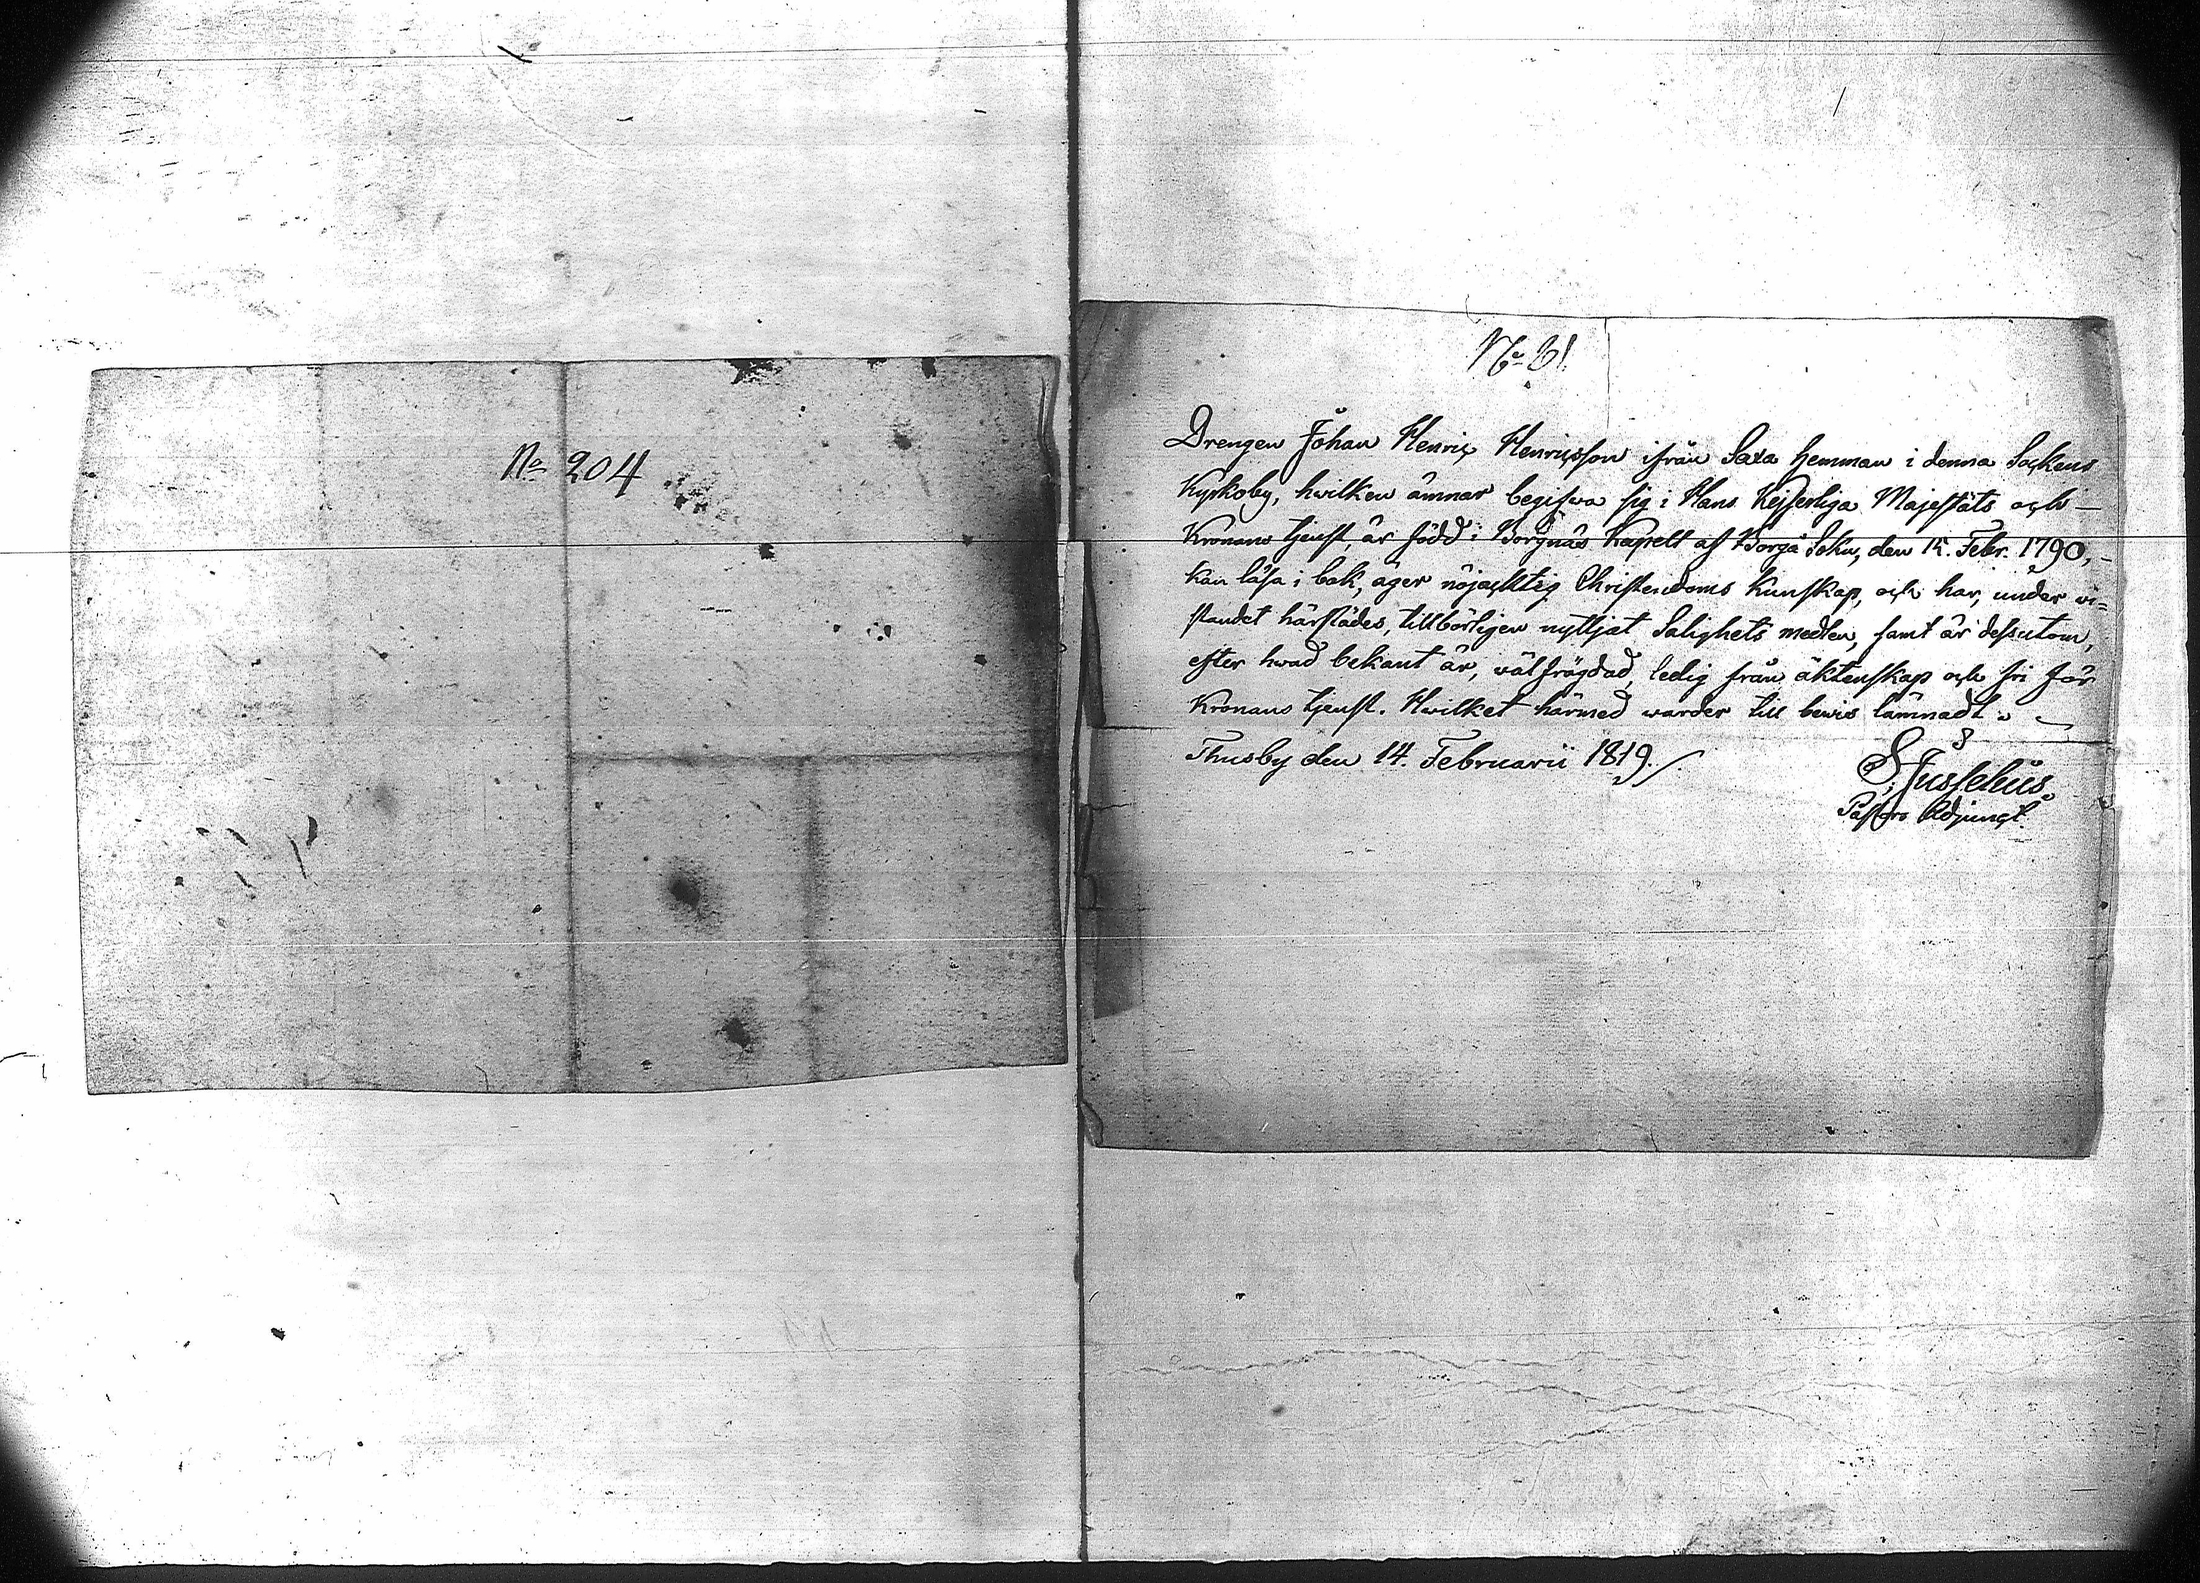 No 204
No 61.
Drengen Johan Henric Henricsson ifrån Saxa hemman i denna Sockens
Kyrkoby, hwilken ämnar begifwa sig i Hans Kejserliga Majestäts och
Kronans tjenst, är född i Borgnäs Kapell af Borgå Sokn, den 15. Febr. 1790,
kan läsa i bok, äger nöjachtig Christendoms kunskap, och har, under wi=
standet härstädes, tillbörligen nyttjat Salighets medlen, samt är dessutom,
efter hwad bekant är, välfrägdad, ledig från äktenskap och fri för
Kronans tjenst. Hwilket härmed warder till bewis lämnadt.
Thusby den 14. Februarii 1819.
Pastors Adjunct.